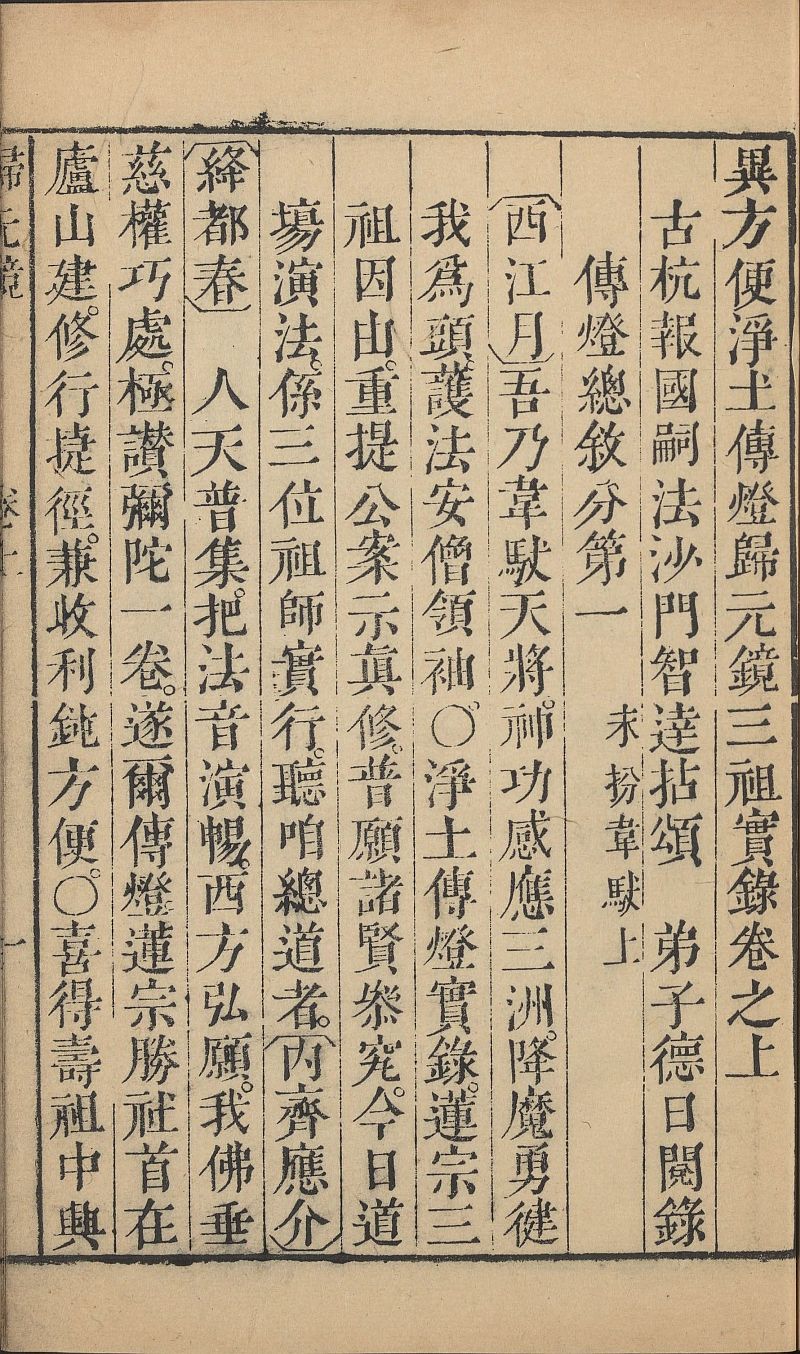 異方便淨土傳燈歸元鏡三祖實錄卷之上
古杭報國嗣法沙門智逹拈頌　弟子德日閱錄
傳燈總敘分第一　末扮韋馱上
〔西江月〕吾乃韋馱天將。神功感應三洲。降魔勇徤
我爲頭。護法安僧領袖。〇淨土傳燈實錄。蓮宗三
祖因山。重提公案示眞修。普願諸賢叅究。今日道
塲演法。係三位祖師實行。聽咱總道者。〔內齊應介〕
〔絳都春〕　人天普集。把法音演暢。西方弘願。我佛垂
慈權巧處。極讃彌陀一卷。遂爾傳燈蓮宗勝社首在
廬山建。修行捷徑。兼收利鈍方便。〇喜得壽祖中興
歸元鏡　卷上　一